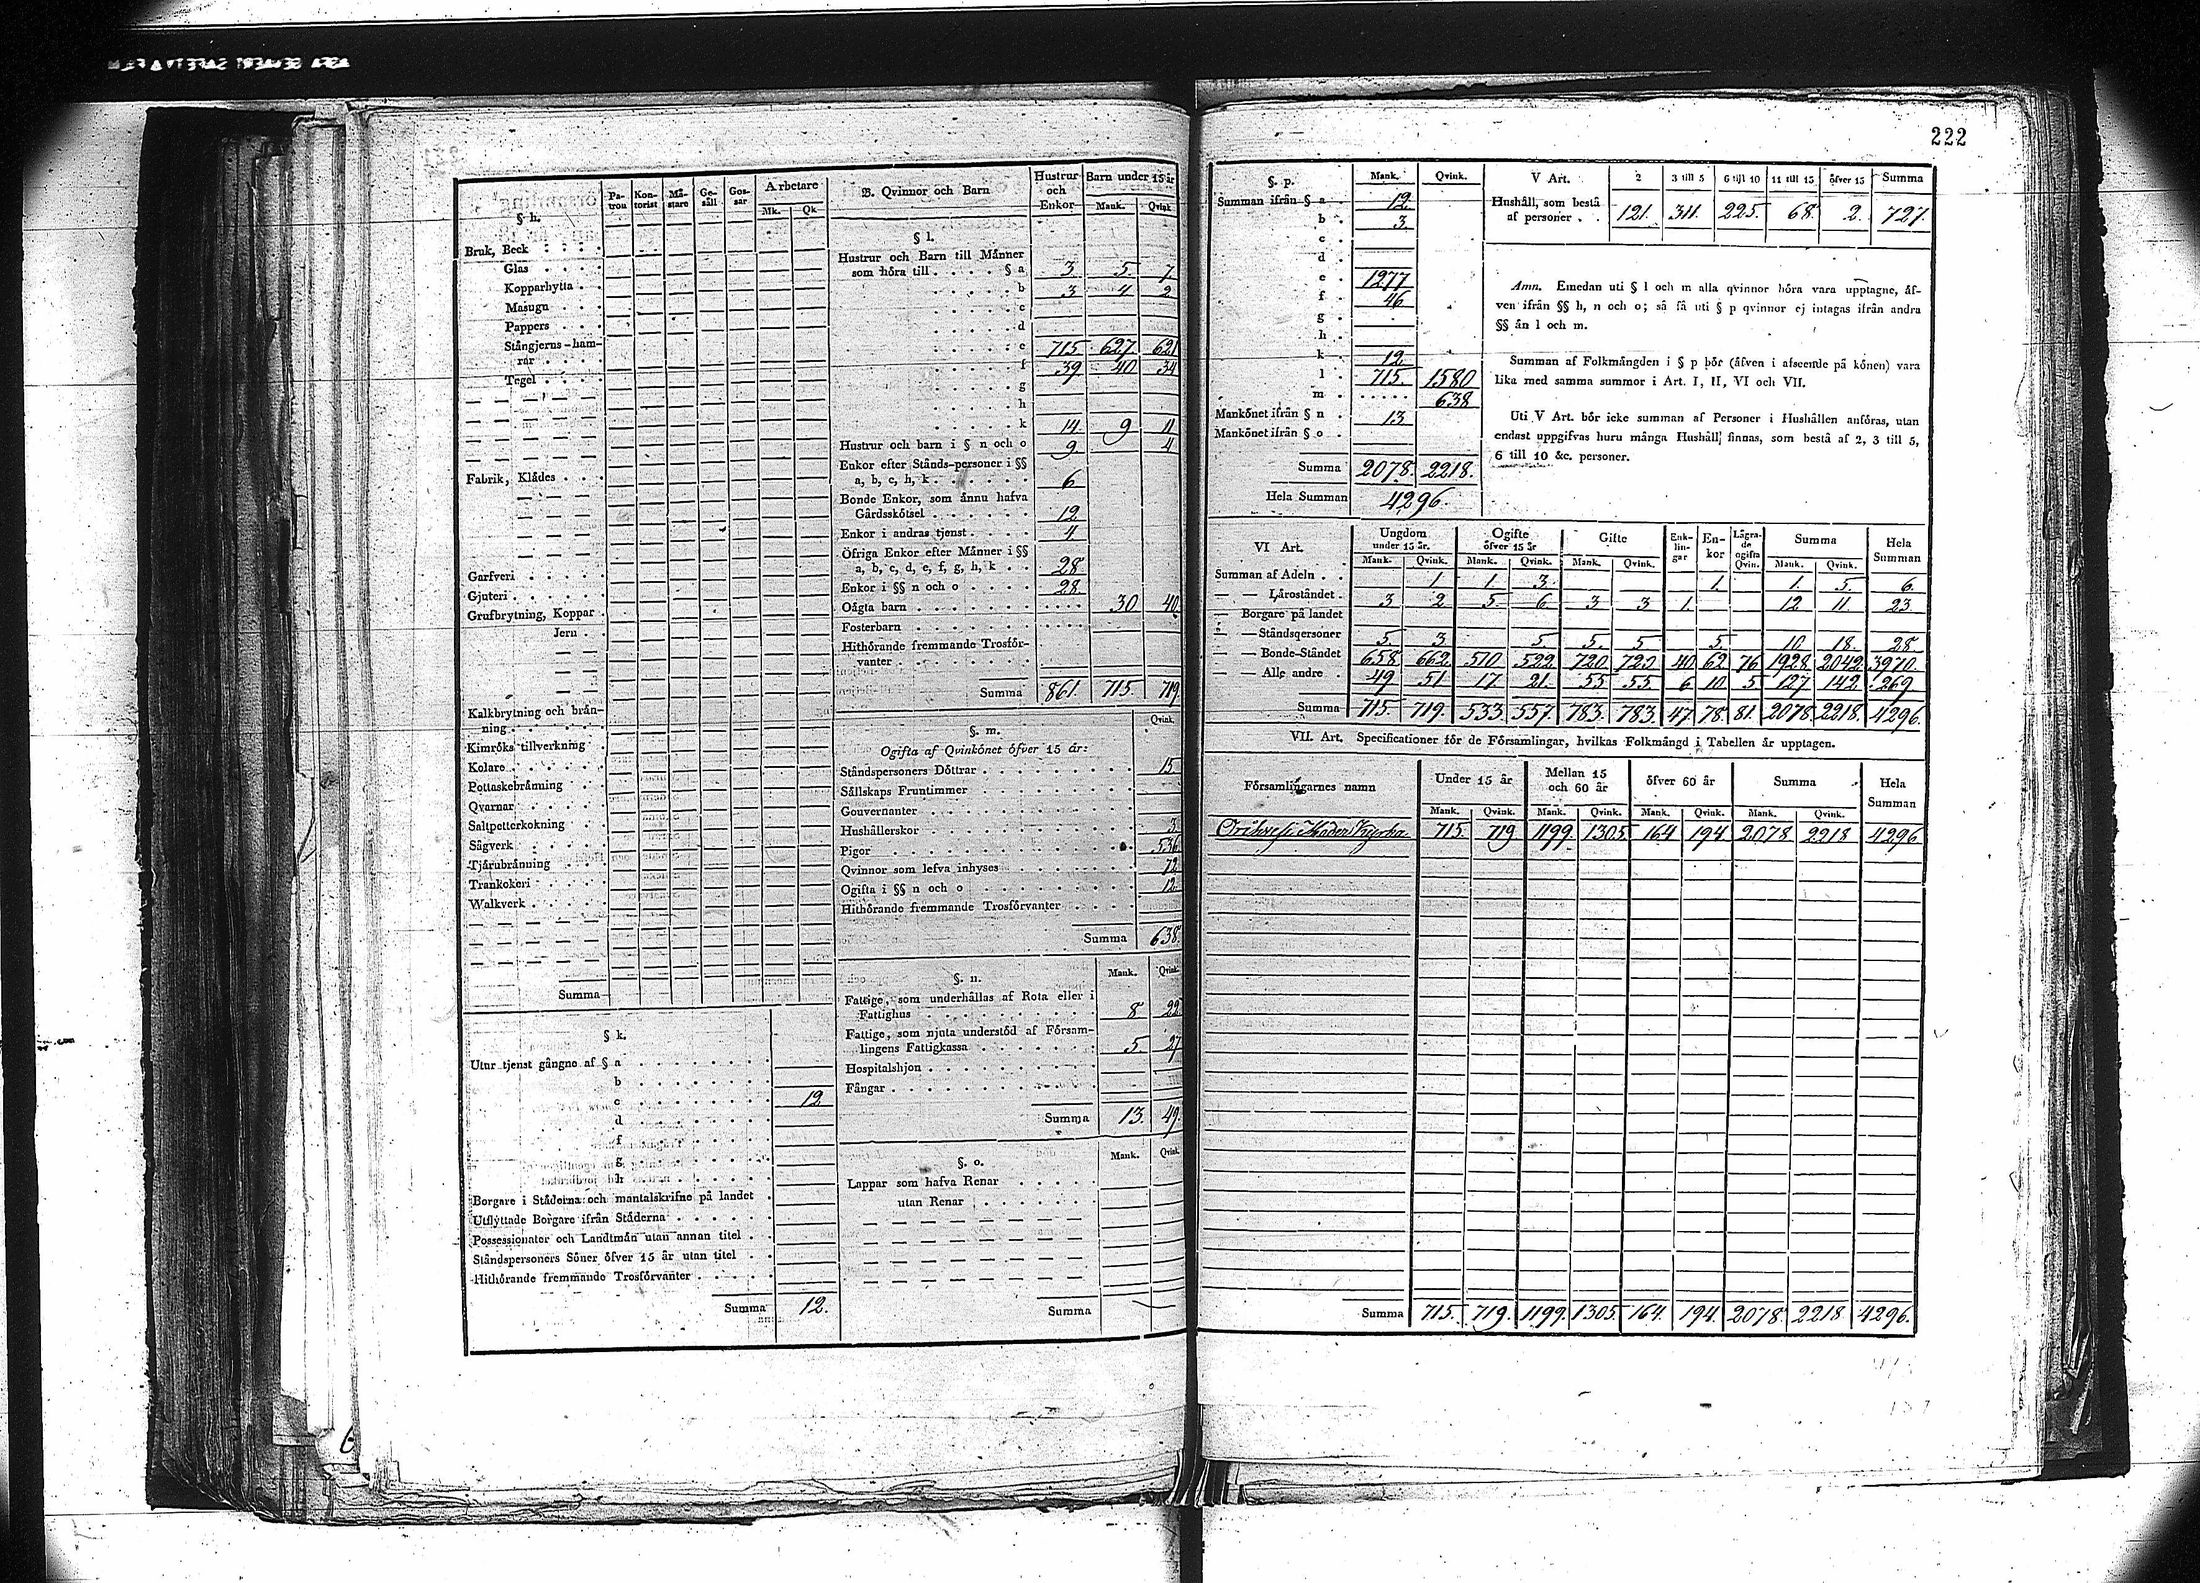 222
§ h.
Pa-
tron
Kon-
torist
Må-
stare
Ge-
säll
Gos-
sar
Arbetare
Mk. Qk
Bruk, Beck
Glas
Kopparhytta
Masugn
Pappers
Stångjerns-ham-
rar
Tegel
Fabrik, Klådes
Garfveri
Gjuteri
Grufbrytning, Koppar
Jern
Kalkbrytning och brån-
ning
Kimröks tillverkning
Kolare
Pottaskebränning
Qvarnar
Saltpetterkokning
Sågverk
Tjårubrånning
Trankokeri
Walkverk
Summa
§ k.
Utur tjenst gångne af § a
b
c 12
d
f
g
h
Borgare i Ståderna och mantalskrifne på landet
Utflyttade Borgare ifrån Ståderna
Possessionater och Landtmån utan annan titel
Ståndspersoners Söner öfver 15 år utan titel
Hithörande fremmande Trosförvanter
Summa 12.
B. Qvinnor och Barn
Hustrur
och
Enkor
Barn under 15 år
Mank. Qvink
§ l.
Hustrur och Barn till Månner
som höra till § a 3. 5. 7
b 3 4 2
c
d
e 715 627 621
f 39 40 34
g
h
k 14 9 11
Hustrur och barn i § n och o 9. 4
Enkor efter Stånds-personer i §§
a, b, c, h, k 6
Bonde Enkor, som ånnu hafva
Gårdsskötsel 12
Enkor i andras tjenst 4
Öfriga Enkor efter Månner i §§
a, b, c, d, e, f, g, h, k 28
Enkor i §§ n och o 28
Oågta barn 30 40
Fosterbarn
Hithörande fremmande Trosför-
vanter
Summa 861. 715 719.
§. m. Qvink.
Ogifta af Qvinkönet öfver 15 år:
Ståndspersoners Döttrar 15
Sållskaps Fruntimmer
Gouvernanter
Hushållerskor 3
Pigor 536
Qvinnor som lefva inhyses 72
Ogifta i §§ n och o 12
Hithörande fremmande Trosförvanter
Summa 638.
§. n. Mank. Qvink
Fattige, som underhållas af Rota eller i
Fattighus 8 22
Fattige, som njuta understöd af Försam-
lingens Fattigkassa 5. 27
Hospitalshjon
Fångar
Summa 13. 49.
§. o. Mank. Qvink
Lappar som hafva Renar
utan Renar
Summa
§. p. Mank. Qvink.
Summan ifrån § a 12
b 3.
c
d
e 1277
f 46
g
h
k 12
l 715. 1580
m 638
Mankönet ifrån § n 13
Mankönet ifrån § o
Summa 2078. 2218.
Hela Summan 4296.
V Art. 2 3 till 5 6 till 10 11 till 15 öfver 15 Summa
Hushåll, som bestå
af personer 121. 311. 225. 68. 2. 727.
Anm. Emedan uti § l och m alla qvinnor böra vara upptagne, åf-
ven ifrån §§ h, n och o; så få uti § p qvinnor ej intagas ifrån andra
§§ ån l och m.
Summan af Folkmångden i § p bör (åfven i afseende på könen) vara
lika med samma summor i Art. I, II, VI och VII.
Uti V Art. bör icke summan af Personer i Hushållen anföras, utan
endast uppgifvas huru många Hushåll finnas, som bestå af 2, 3 till 5,
6 till 10 &c. personer.
VI Art.
Ungdom
under 15 år.
Ogifte
öfver 15 år
Gifte
Enk-
lin-
gar
En-
kor
Lågra-
de
ogifta
Qvin.
Summa
Hela
Summan
Mank. Qvink. Mank. Qvink. Mank. Qvink. Mank. Qvink.
Summan af Adeln 1 1 3 1. 1. 5. 6.
— — Låroståndet 3 2 5. 6 3 3 1. 12 11. 23
— — Borgare på landet
— — Ståndspersoner 5 3 5 5. 5 5. 10 18. 28
— — Bonde-Ståndet 658 662 510 522 720 720 40 62 76 1928 2042 3970.
— — Alle andre 49 51 17 21. 55 55 6 10 5 127 142 269
Summa 715. 719. 533 557. 783. 783. 47. 78. 81. 2078 2218. 4296.
VII. Art. Specificationer för de Församlingar, hvilkas Folkmångd i Tabellen år upptagen.
Församlingarnes namn
Under 15 år
Mellan 15
och 60 år
öfver 60 år
Summa
Hela
Summan
Mank. Qvink. Mank. Qvink. Mank. Qvink. Mank. Qvink.
715. 719 1199 1305 164 194 2078 2218 4296
Summa 715. 719. 1199. 1305. 164. 194. 2078. 2218 4296.